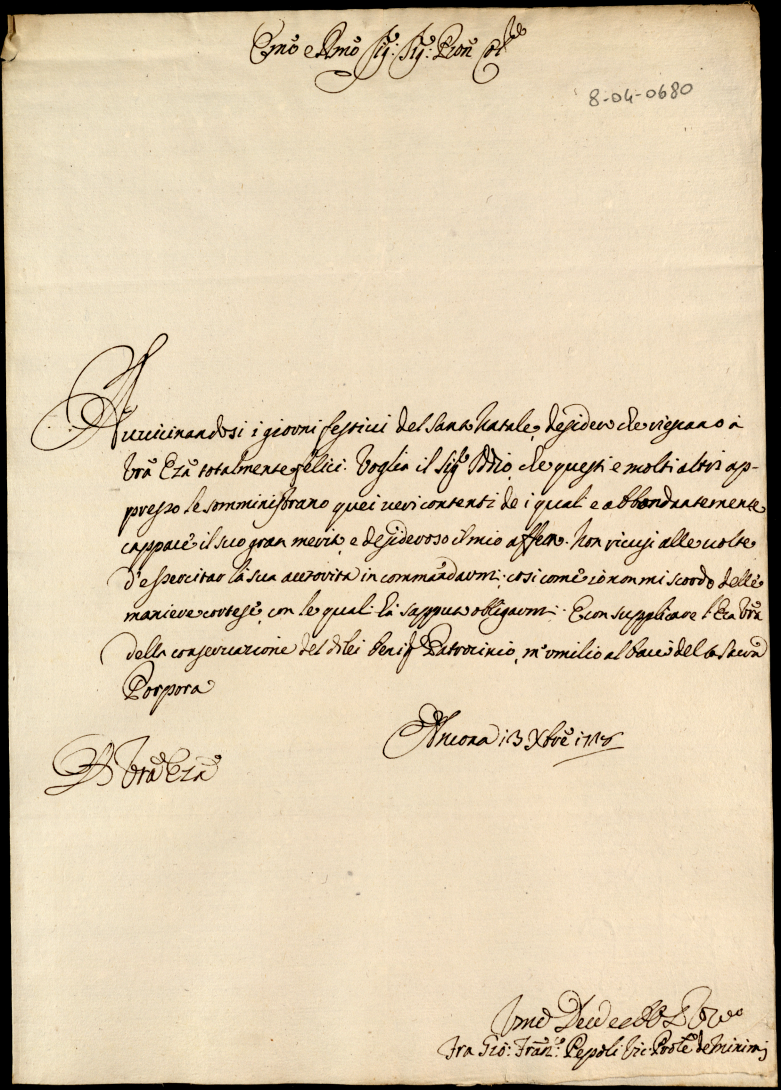 Emõ e Rmõ Sig: Sig: Pron Col
8-04-0680
Avvicinandosi i giorni festivi del Santo Natale, desidero che vignano à
Vrã Ezã totalmente felici. Voglia il Sig: Iddio, che questi e molti altri ap-
presso le somministrano quei veri contenti de i quali e abbondantemente
cappace il suo gran merito, e desideroso il mio affetto. Non ricusi alle volte
d'essercitar la sua autorita in commãdarmi, cosi come io non mi scordo delle
maniere cortese, con le quali hà sapputo obligarmi. E con supplicare l'Eza Vrã
della conservazione del di lei benig: Patrocinio, m'umilio al bacio della Sacra
Porpora
Ancona 13 Xbre
D Vrã Ezã
Fra Gio: Franc: Pepoli Vic: Prole de Minimi